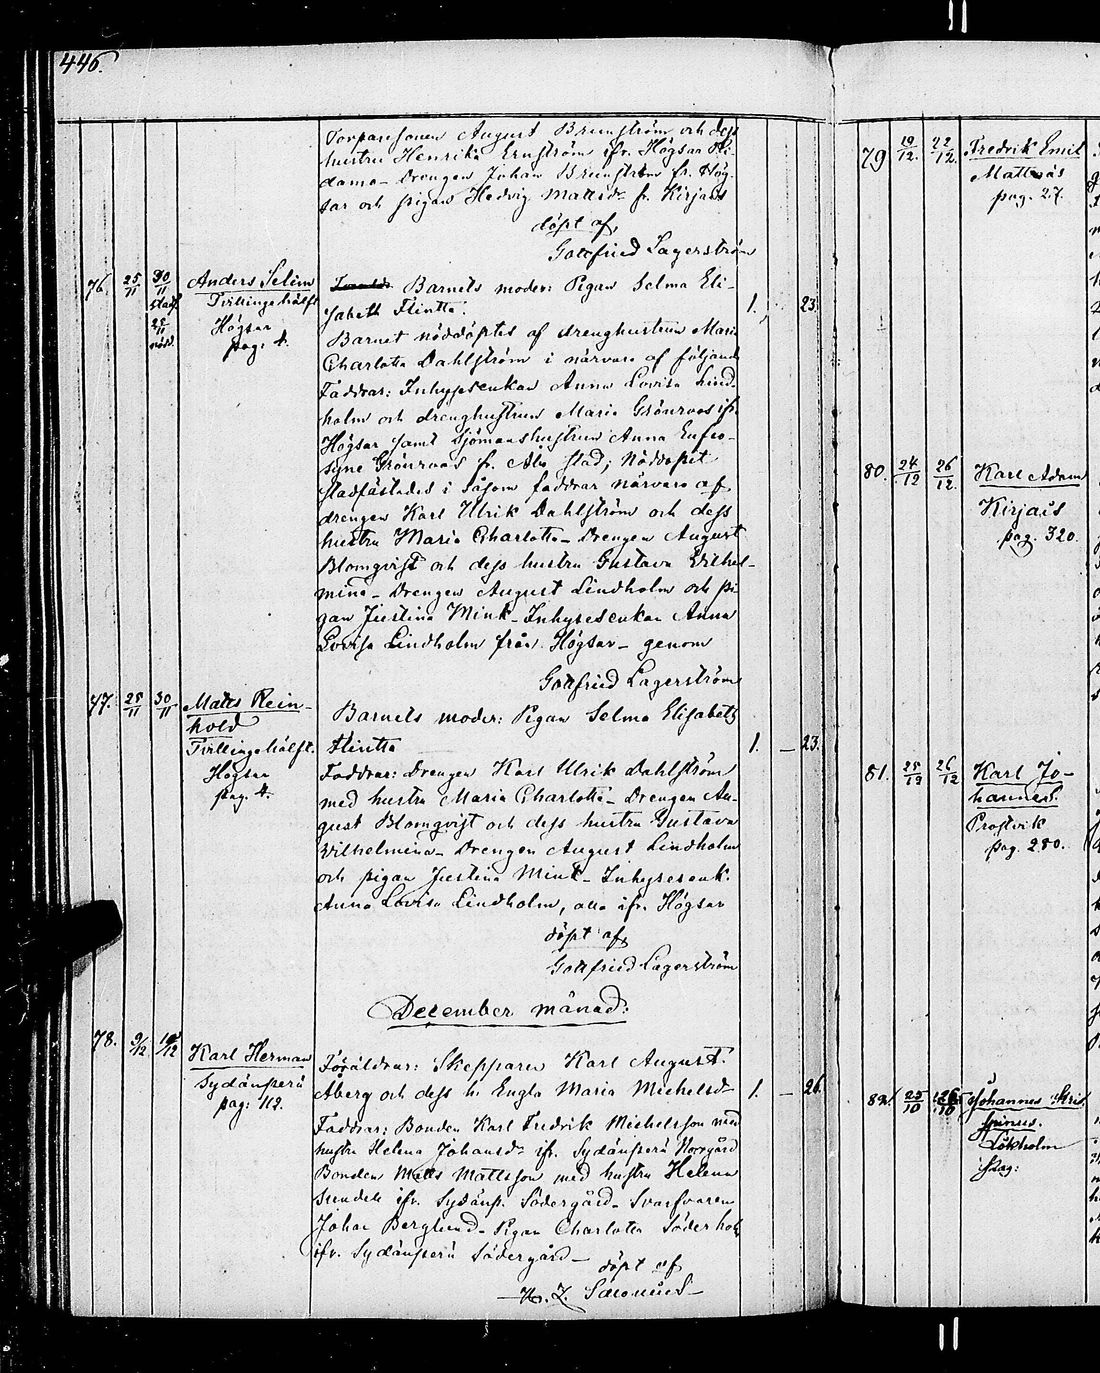 446.
Torparesonen August Brunström och dess
hustru Henrika Ernström ifr. Högsar
Drengen Johan Brunström fr. Hög-
sar och pigan Hedvig Mattsdr fr. Kirjais
döpt af
Gottfried Lagerström
76. 25/11 30/11 stadf. 25/11 nödd.
Anders Selim
Tvillingehälft
Högsar
pag. 4.
Barnets moder: Pigan Selma Eli-
sabeth Flintta.
1. 23.
Barnet nöddöptes af drenghustrun Maria
Charlotta Dahlström i närvaro af följande
Faddrar: Inhysesenkan Anna Lovisa Lind-
holm och drenghustrun Maria Grönroos ifr.
Högsar samt Sjömanshustrun Anna Eufro-
syne Grönroos fr. Åbo stad; Nöddopet
stadfästades i såsom faddrar närvaro af
drengen Karl Ulrik Dahlström och dess
hustru Maria Charlotta – Drengen August
Blomqvist och dess hustru Gustava Wilhel-
mina – Drengen August Lindholm och pi-
gan Justina Mink – Inhysesenkan Anna
Lovisa Lindholm från Högsar – genom
Gottfried Lagerström
77. 25/11 30/11
Matts Rein-
hold
Tvillingehälft.
Högsar
pag. 4.
Barnets moder: Pigan Selma Elisabeth
Flintta
1. – 23.
Faddrar: Drengen Karl Ulrik Dahlström
med hustru Maria Charlotta – Drengen Au-
gust Blomqvist och dess hustru Gustava
Wilhelmina – Drengen August Lindholm
och pigan Justina Mink – Inhysesenk.
Anna Lovisa Lindholm, alla ifr. Högsar
döpt af
Gottfried Lagerström
December månad:
78. 9/12 10/12
Karl Herman
Sydänperä
pag: 112.
Föräldrar: Skepparen Karl August
Åberg och dess h. Engla Maria Michelsdr
1. – 26.
Faddrar: Bonden Karl Fredrik Michelsson med
hustru Helena Johansdr ifr. Sydänperä Norrgård
Bonden Matts Mattsson med hustru Helena
Sundell ifr. Sydänp. Södergård – Svarfvaren
Johan Berglund – Pigan Charlotta Söderholm
ifr. Sydänperä Södergård –
döpt af
Saxonius –
79. 19/12. 22/12.
Fredrik Emil
Mattnäs
pag. 27.
80. 24/12 26/12.
Karl Adam
Kirjais
pag. 320.
81. 25/12 26/12
Karl Jo-
hannes.
Prostvik
pag. 280.
82. 25/10 26/10
Johannes
Lökholm
pag: